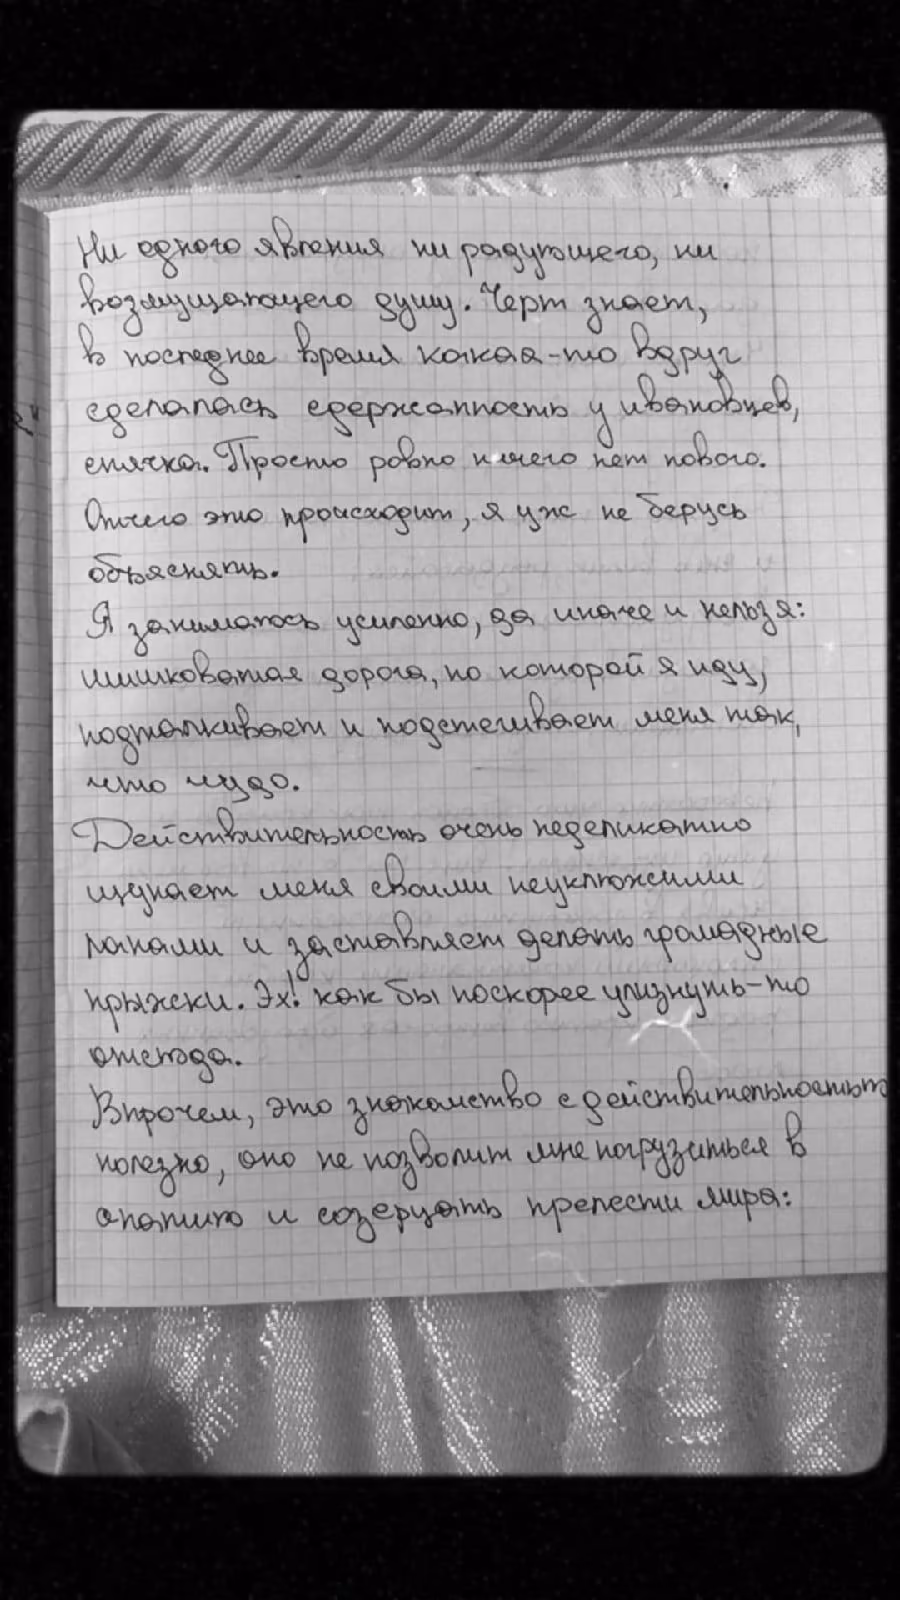 Ни одного явления ни радующего, ни
возмущающего душу. Черт знает,
в последнее время какая-то вдруг
сделалась сдержанность у ивановцев,
спячка. Просто ровно ничего нет нового.
Отчего это происходит, я уж не берусь
объяснять.
Я занимаюсь усиленно, да иначе и нельзя:
шишковатая дорога, по которой я иду,
подталкивает и подстегивает меня так,
что чудо.
Действительность очень неделикатно
щупает меня своими неуклюжими
лапами и заставляет делать громадные
прыжки. Эх! как бы поскорее улизнуть-то
отсюда.
Впрочем, это знакомство с действительностью
полезно, оно не позволит мне погрузиться в
апатию и созерцать прелести мира: